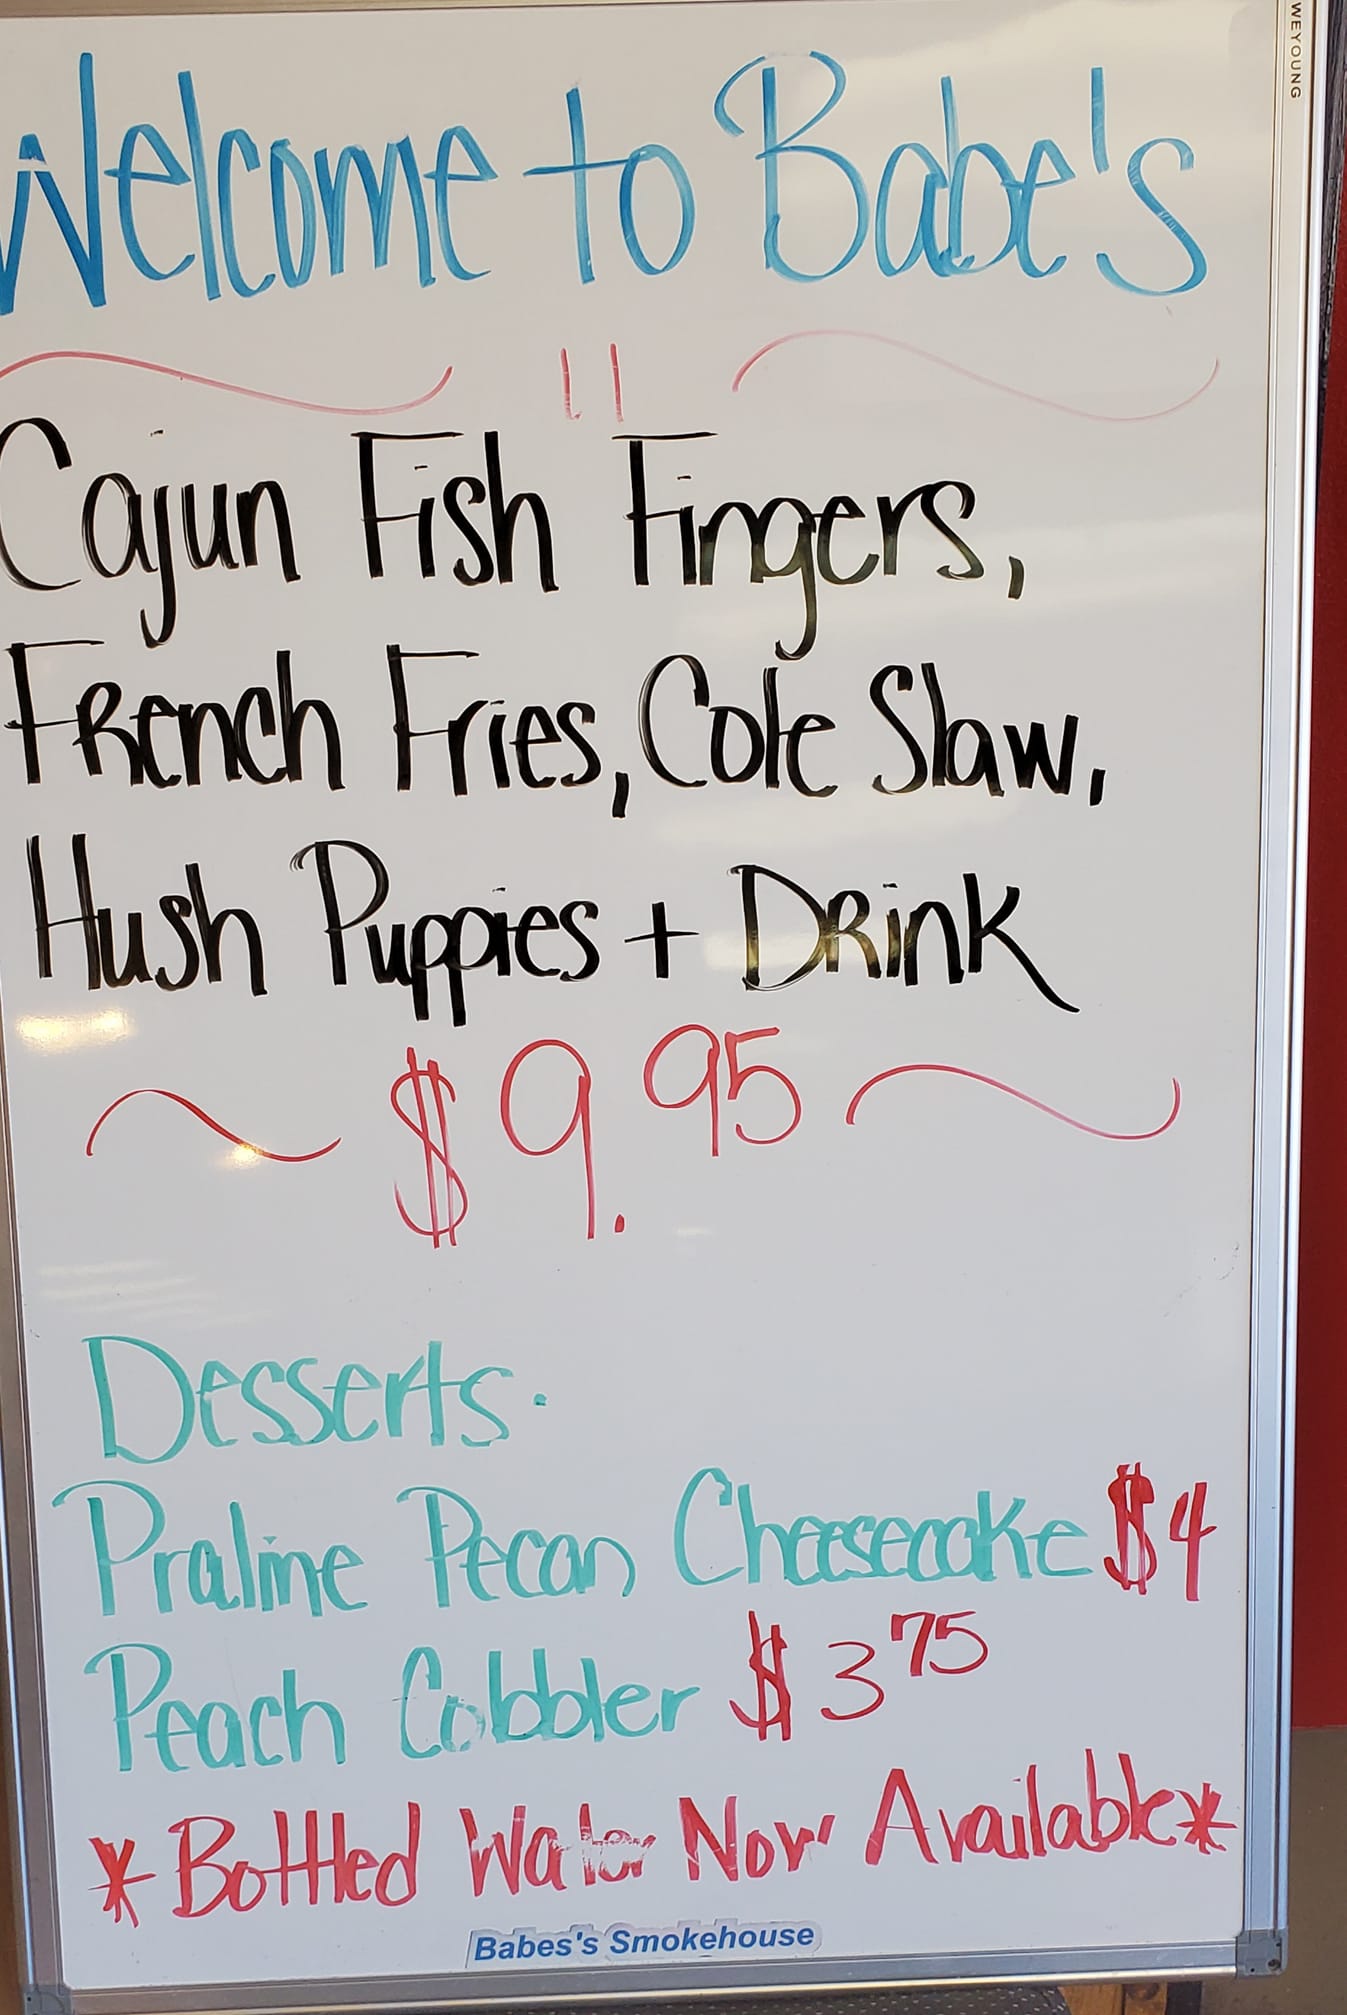 WEYOUNG
Welcome to Babe's
11
Cajun Fish Fingers,
French Fries, Cole Slaw,
Hush Puppies + Drink
~ $9.95 ~
Desserts.
Praline Pecan Cheesecake $4
Peach Cobbler $3 75
*Bottled Water Now Available*
Babes's Smokehouse